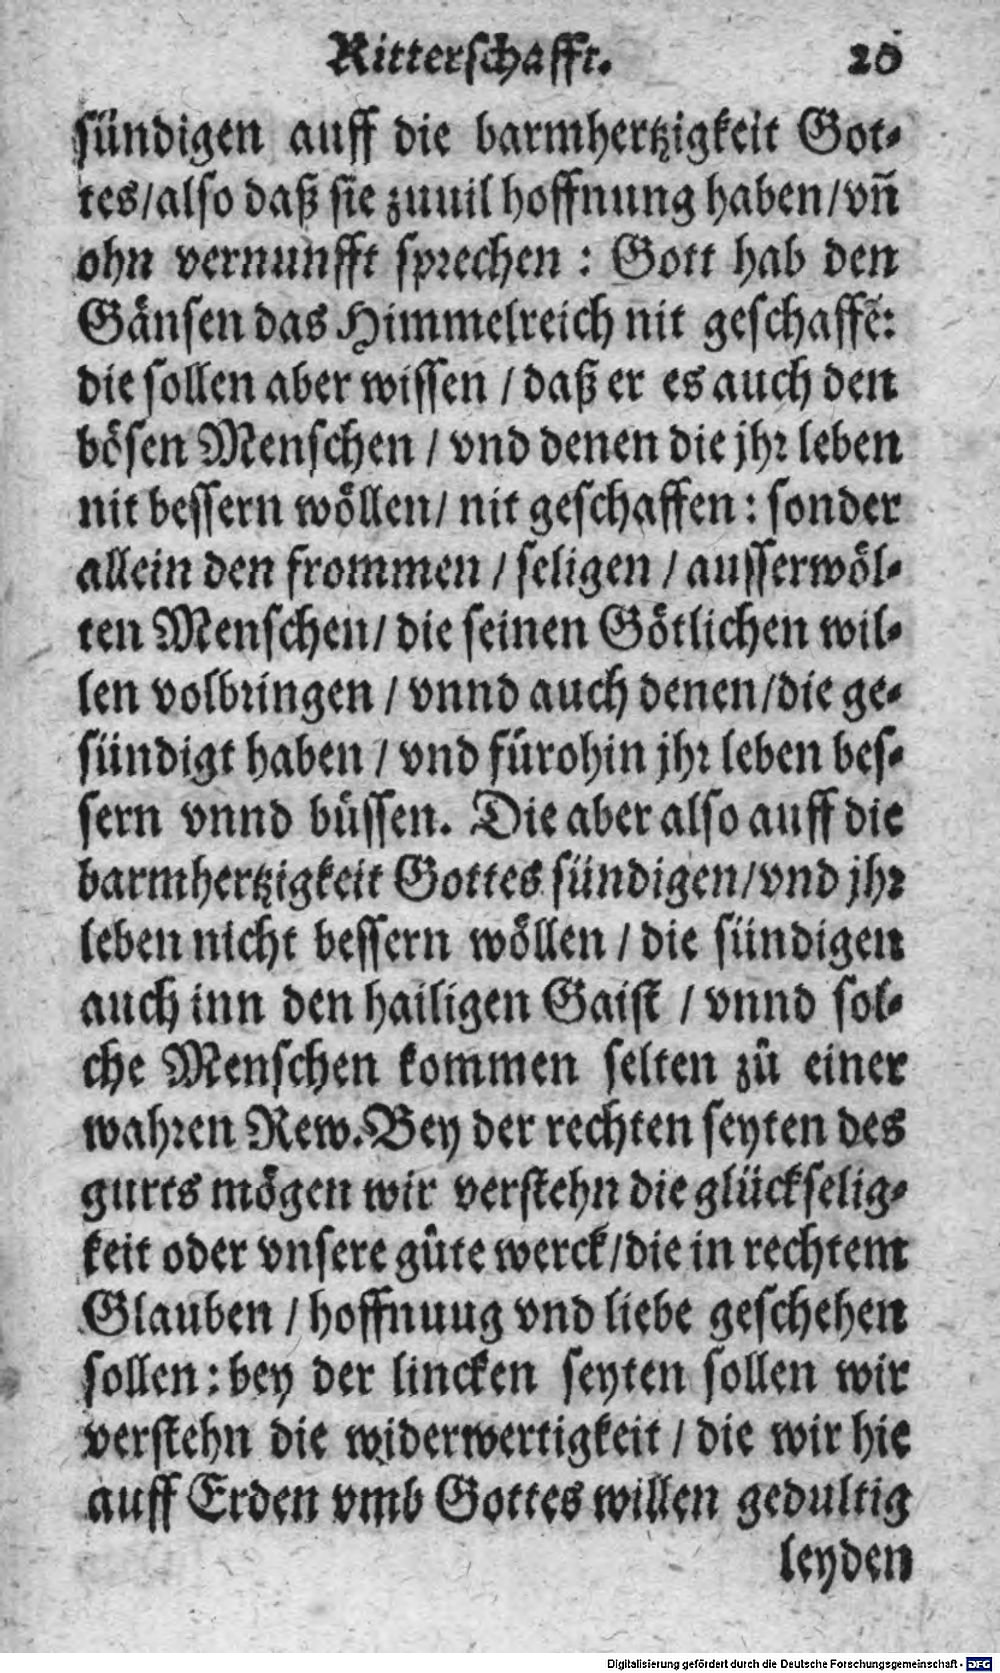 Ritterschafft. 20
sündigen auff die barmhertzigkeit Got-
tes/also daß sie zuuil hoffnung haben/vn̄
ohn vernunfft sprechen : Gott hab den
Gänsen das Himmelreich nit geschaffē:
die sollen aber wissen / daß er es auch den
bösen Menschen / vnd denen die jhr leben
nit bessern wöllen/ nit geschaffen : sonder
allein den frommen / seligen / ausserwöl-
ten Menschen/ die seinen Götlichen wil-
len volbringen / vnnd auch denen/die ge-
sündigt haben / vnd fürohin jhr leben bes-
sern vnnd büssen. Die aber also auff die
barmhertzigkeit Gottes sündigen/vnd jhr
leben nicht bessern wöllen / die sündigen
auch inn den hailigen Gaist / vnnd sol-
che Menschen kommen selten zů einer
wahren Rew. Bey der rechten seyten des
gurts mögen wir verstehn die glückselig-
keit oder vnsere gůte werck/die in rechtem
Glauben / hoffnuug vnd liebe geschehen
sollen : bey der lincken seyten sollen wir
verstehn die widerwertigkeit / die wir hie
auff Erden vmb Gottes willen gedultig
leyden
Digitalisierung gefördert durch die Deutsche Forschungsgemeinschaft - DFG